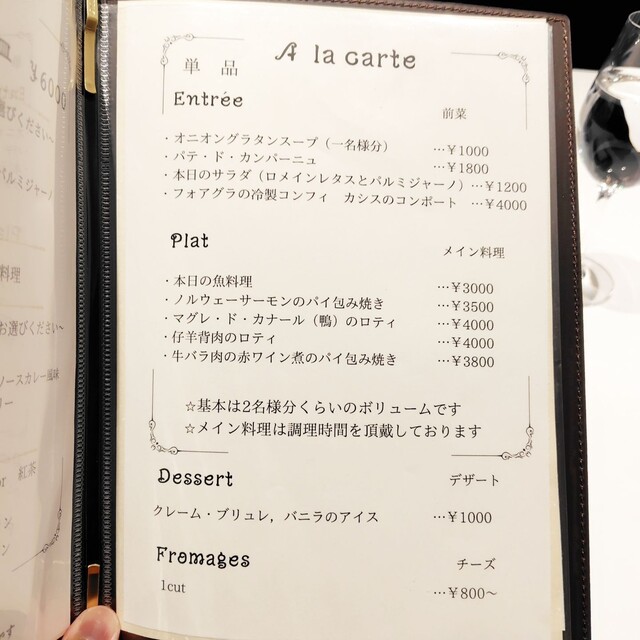 ¥6000
選びください~
パルミジャーノ
料理
お選びください~
ソースカレー風味
紅茶
A la carte
単 品
Entrée 前菜
・オニオングラタンスープ（一名様分） …¥1000
・パテ・ド・カンパーニュ …¥1800
・本日のサラダ（ロメインレタスとパルミジャーノ）…¥1200
・フォアグラの冷製コンフィ カシスのコンポート …¥4000
Plat メイン料理
・本日の魚料理 …¥3000
・ノルウェーサーモンのパイ包み焼き …¥3500
・マグレ・ド・カナール（鴨）のロティ …¥4000
・仔羊背肉のロティ …¥4000
・牛バラ肉の赤ワイン煮のパイ包み焼き …¥3800
☆基本は2名様分くらいのボリュームです
☆メイン料理は調理時間を頂戴しております
Dessert デザート
クレーム・ブリュレ，バニラのアイス …¥1000
Fromages チーズ
1cut …¥800～